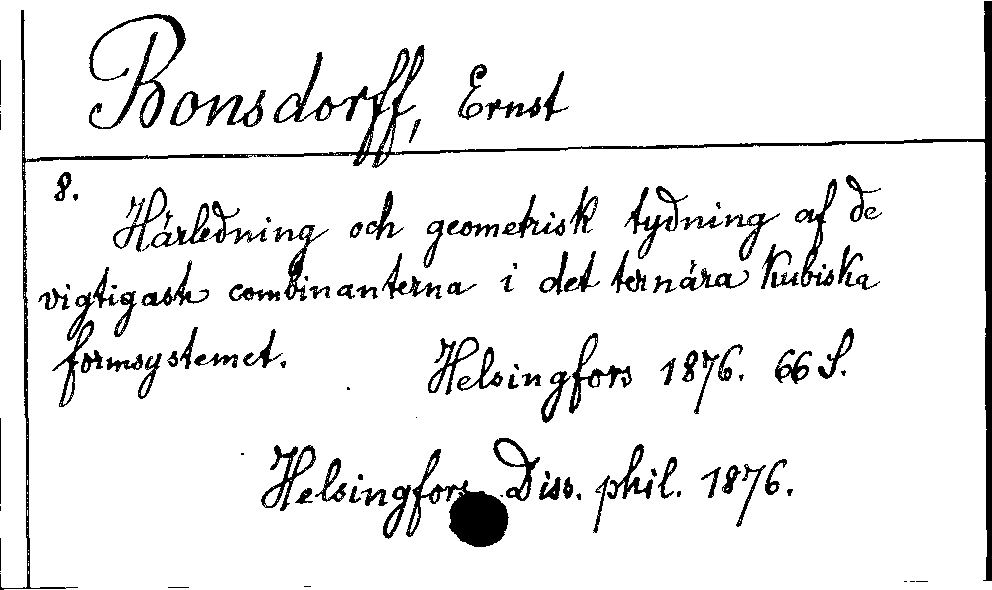 Bonsdorff, Ernst
8.
Härledning och geometrisk tydning af de
vigtigaste combinanterna i det ternära kubiska
formsystemet.
Helsingfors 1876. 66 S.
Helsingfors Diss. phil. 1876.